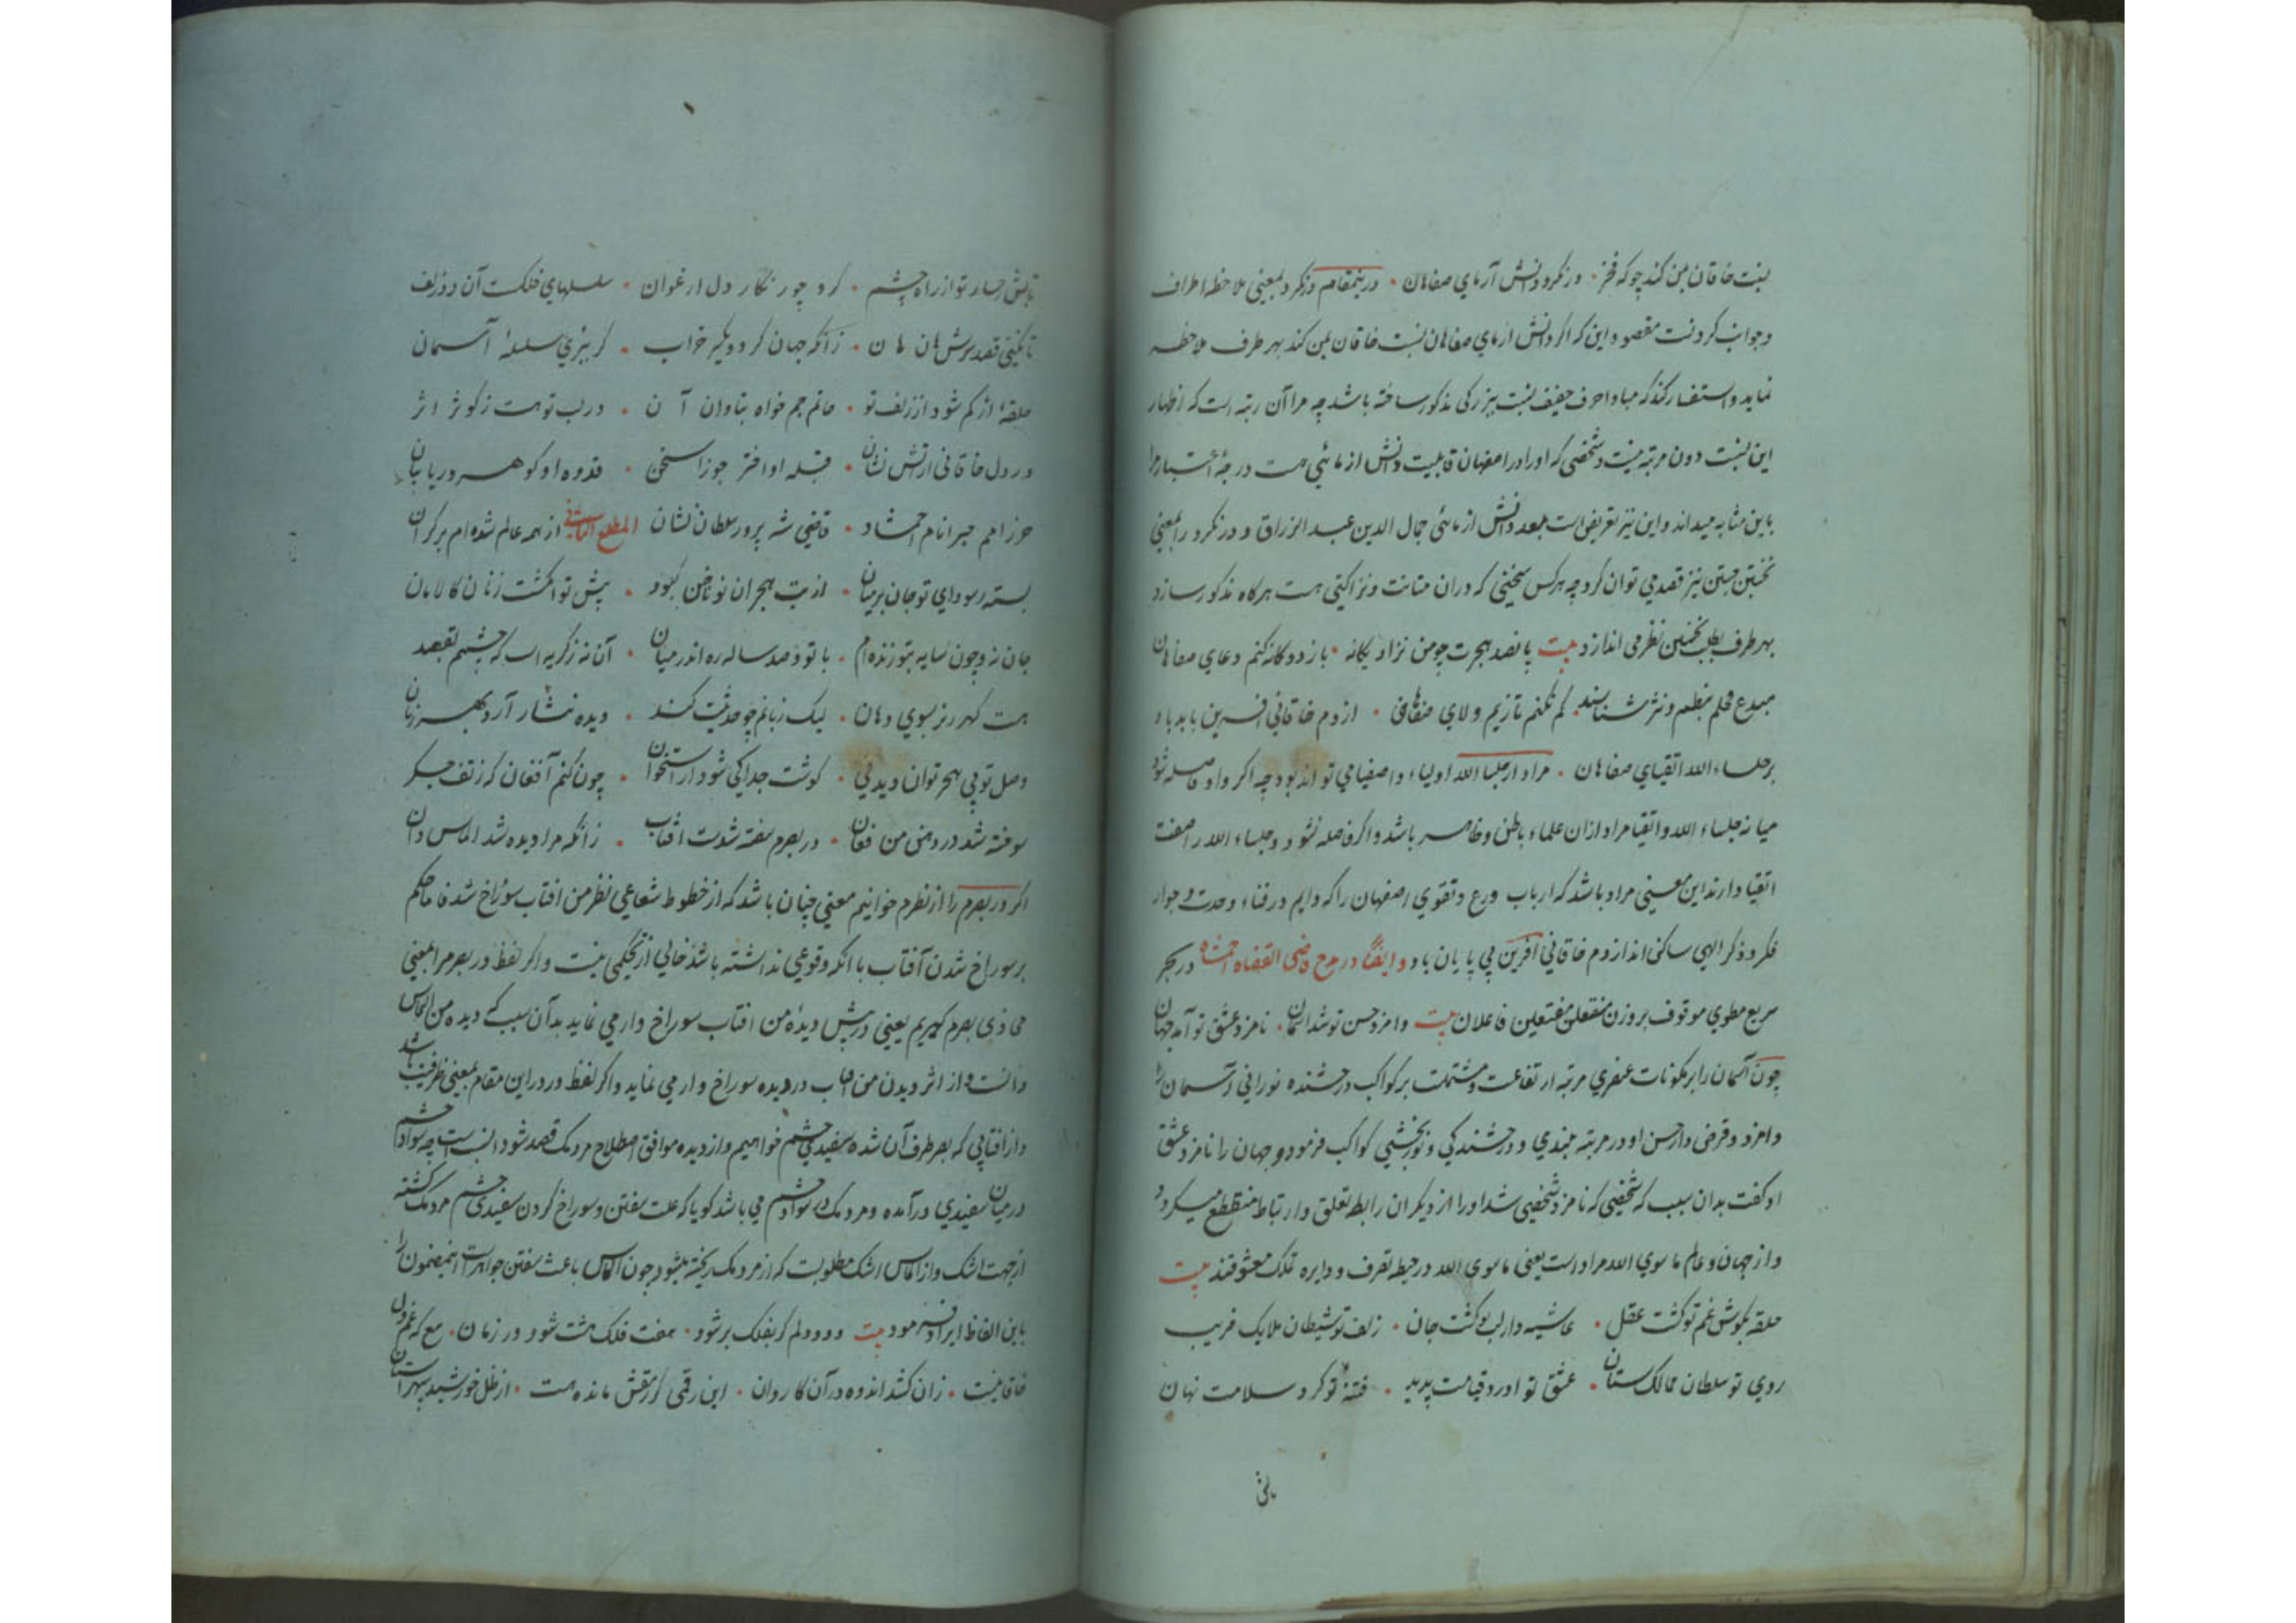 نسبت خاقان بمن کند چو که فخر · در نگرد دانش آزمای صفاهان · درینمقام درنگرد بمعنی ملاحظه اطراف
وجوانب کردنست مقصود این که اگر دانش ازمای صفاهان نسبت خاقان بمن کند بهر طرف ملاحظه
نماید و استفسار کند که مبادا حرف خفیف نسبت ببزرگی مذکور ساخته باشد چه مرا آن رتبه است که اظهار
این نسبت دون مرتبه منست و شخصی که او را در اصفهان قابلیت دانش ازمائی هست درجهٔ اعتبار مرا
باین مثابه میداند و این نیز تعریفی است بعد دانش ازمائی جمال الدین عبد الرزاق و درنگرد را بمعنی
نخستین جستن نیز قصد می توان کرد چه هرکس سخنی که دران متانت و نزاکتی هست هرگاه مذکور سازد
بهر طرف بطلب تحسین نظر می اندازد بیت پانصد هجرت چو من نزاد یگانه · باز دوگانه کنم دعای صفاهان
مبدع فحلم بنظم و نثر شناسند · کم نکنم تازیم ولای صفاهان · از دم خاقانی افرین باید باد
بر جلساء الله اتقیای صفاهان · مراد از جلساء الله اولیاء و اصفیا می تواند بود چه اگر واو فاصله شود
میانه جلساء الله و اتقیا مراد ازان علماء باطن و ظاهر باشد و اگر فاصله نشود و جلساء الله را صفت
اتقیا دارند این معنی مراد باشد که ارباب ورع و تقوی اصفهان را که دایم در فناء وحدت و جوار
فکر و ذکر الهی ساکن اند از دم خاقانی افرین بی پایان باد و ایضاً در مدح قاضی القضاه احمشاد در بحر
سریع مطوی موقوف بر وزن مفتعلن مفتعلن فاعلان بیت وامزد حسن تو شد اسمان · نامزد عشق تو آمد جهان
چون آسمان را بر مکونات عنصری مرتبه ارتفاعست و مشتملست بر کواکب درخشنده نورانی آسمان را
وامزد و قرض دار حسن او در مرتبه بلندی و درخشندگی و نوربخشی کواکب فرمود و جهان را نامزد عشق
او گفت بدان سبب که شخصی که نامزد شخصی شد او را از دیگران رابطه تعلق و ارتباط منقطع میگردد
و از جهان و عالم ما سوی الله مراد است یعنی ما سوی الله در حیطه تصرف و دایره تملک معشوقند بیت
حلقه بگوش غم تو گشت عقل · غاشیه دار لب تو گشت جان · زلف تو شیطان ملایک فریب
روی تو سلطان ممالک ستان · عشق تو اورد قیامت پدید · فتنهٔ تو کرد سلامت نهان
تابش رخسار تو از راه چشم · کرد چو رنگار دل ارغوان · سلسلهای فلکست آن دو زلف
تا نکنی قصد سرش هان هان · زانکه جهان گردد دیگر خراب · گر ببری سلسلهٔ آسمان
حلقهٔ ار کم شود از زلف تو · خاتم جم خواه بتاوان آن · در لب تو هست ز کوثر اثر
در دل خاقانی از آتش نشان · قبله او اختر جوزا سخن · قدوه او گوهر دریا بنان
حرز امم حبر انام احمشاد · قاضی شه پرور سلطان نشان المطلع الثانی از همه عالم شده ام بر کران
بسته بسودای تو جان بر میان · از تب هجران تو ناخن کبود · پیش تو انگشت زنان کالامان
جان نه و چون سایه بتو زنده ام · با تو و صد ساله ره اندر میان · آن نه ز گریه است که چشمم بقصد
هست گهر ریز بسوی دهان · لیک زبانم چو حدیثت کند · دیده نثار آرد بهر زبان
وصل تو بی هجر توان دید نی · گوشت جدا کی شود از استخوان · چون کنم آفغان که ز تف جگر
سوخته شد در دهن من فغان · در بصرم سفته شدست افتاب · زانکه مرا دیده شد الماس دان
اگر در بصرم را از نظرم خوانیم معنی چنان باشد که از خطوط شعاعی نظر من افتاب سوراخ شد فاما حکم
بر سوراخ شدن آفتاب با انکه وقوعی نداشته باشد خالی از تحکمی نیست و اگر لفظ در بصرم را بمعنی
محاذی بصرم گیریم یعنی در پیش دیدهٔ من افتاب سوراخ دار می نماید بدآن سبب که دیده من الماس
دانست و از اثر دیدن من افتاب در دیده سوراخ دار می نماید و اگر لفظ در دراین مقام بمعنی ظرفیت باشد
و از افتابی که بصر ظرف آن شده سفیدی چشم خواهیم و از دیده موافق اصطلاح مردمک قصد شود انسب است چه سواد چشم
درمیان سفیدی درآمده و مردمک در سواد چشم می باشد گویا که علت سفتن و سوراخ کردن سفیدی چشم مردمک گشته
از جهت اشک و از الماس اشک مطلوبست که از مردمک ریخته میشود چون الماس باعث سفتن جواهرست اینمضمون را
باین الفاظ ایراد فرمود بیت دود دلم گر بفلک بر شود · هفت فلک هشت شود در زمان · مع که غم دل
خاقانیست · زان کشد اندوه درآن کاروان · این رقمی کز رقمش مانده هست · از ظل خورشید سپهر استان
تابش